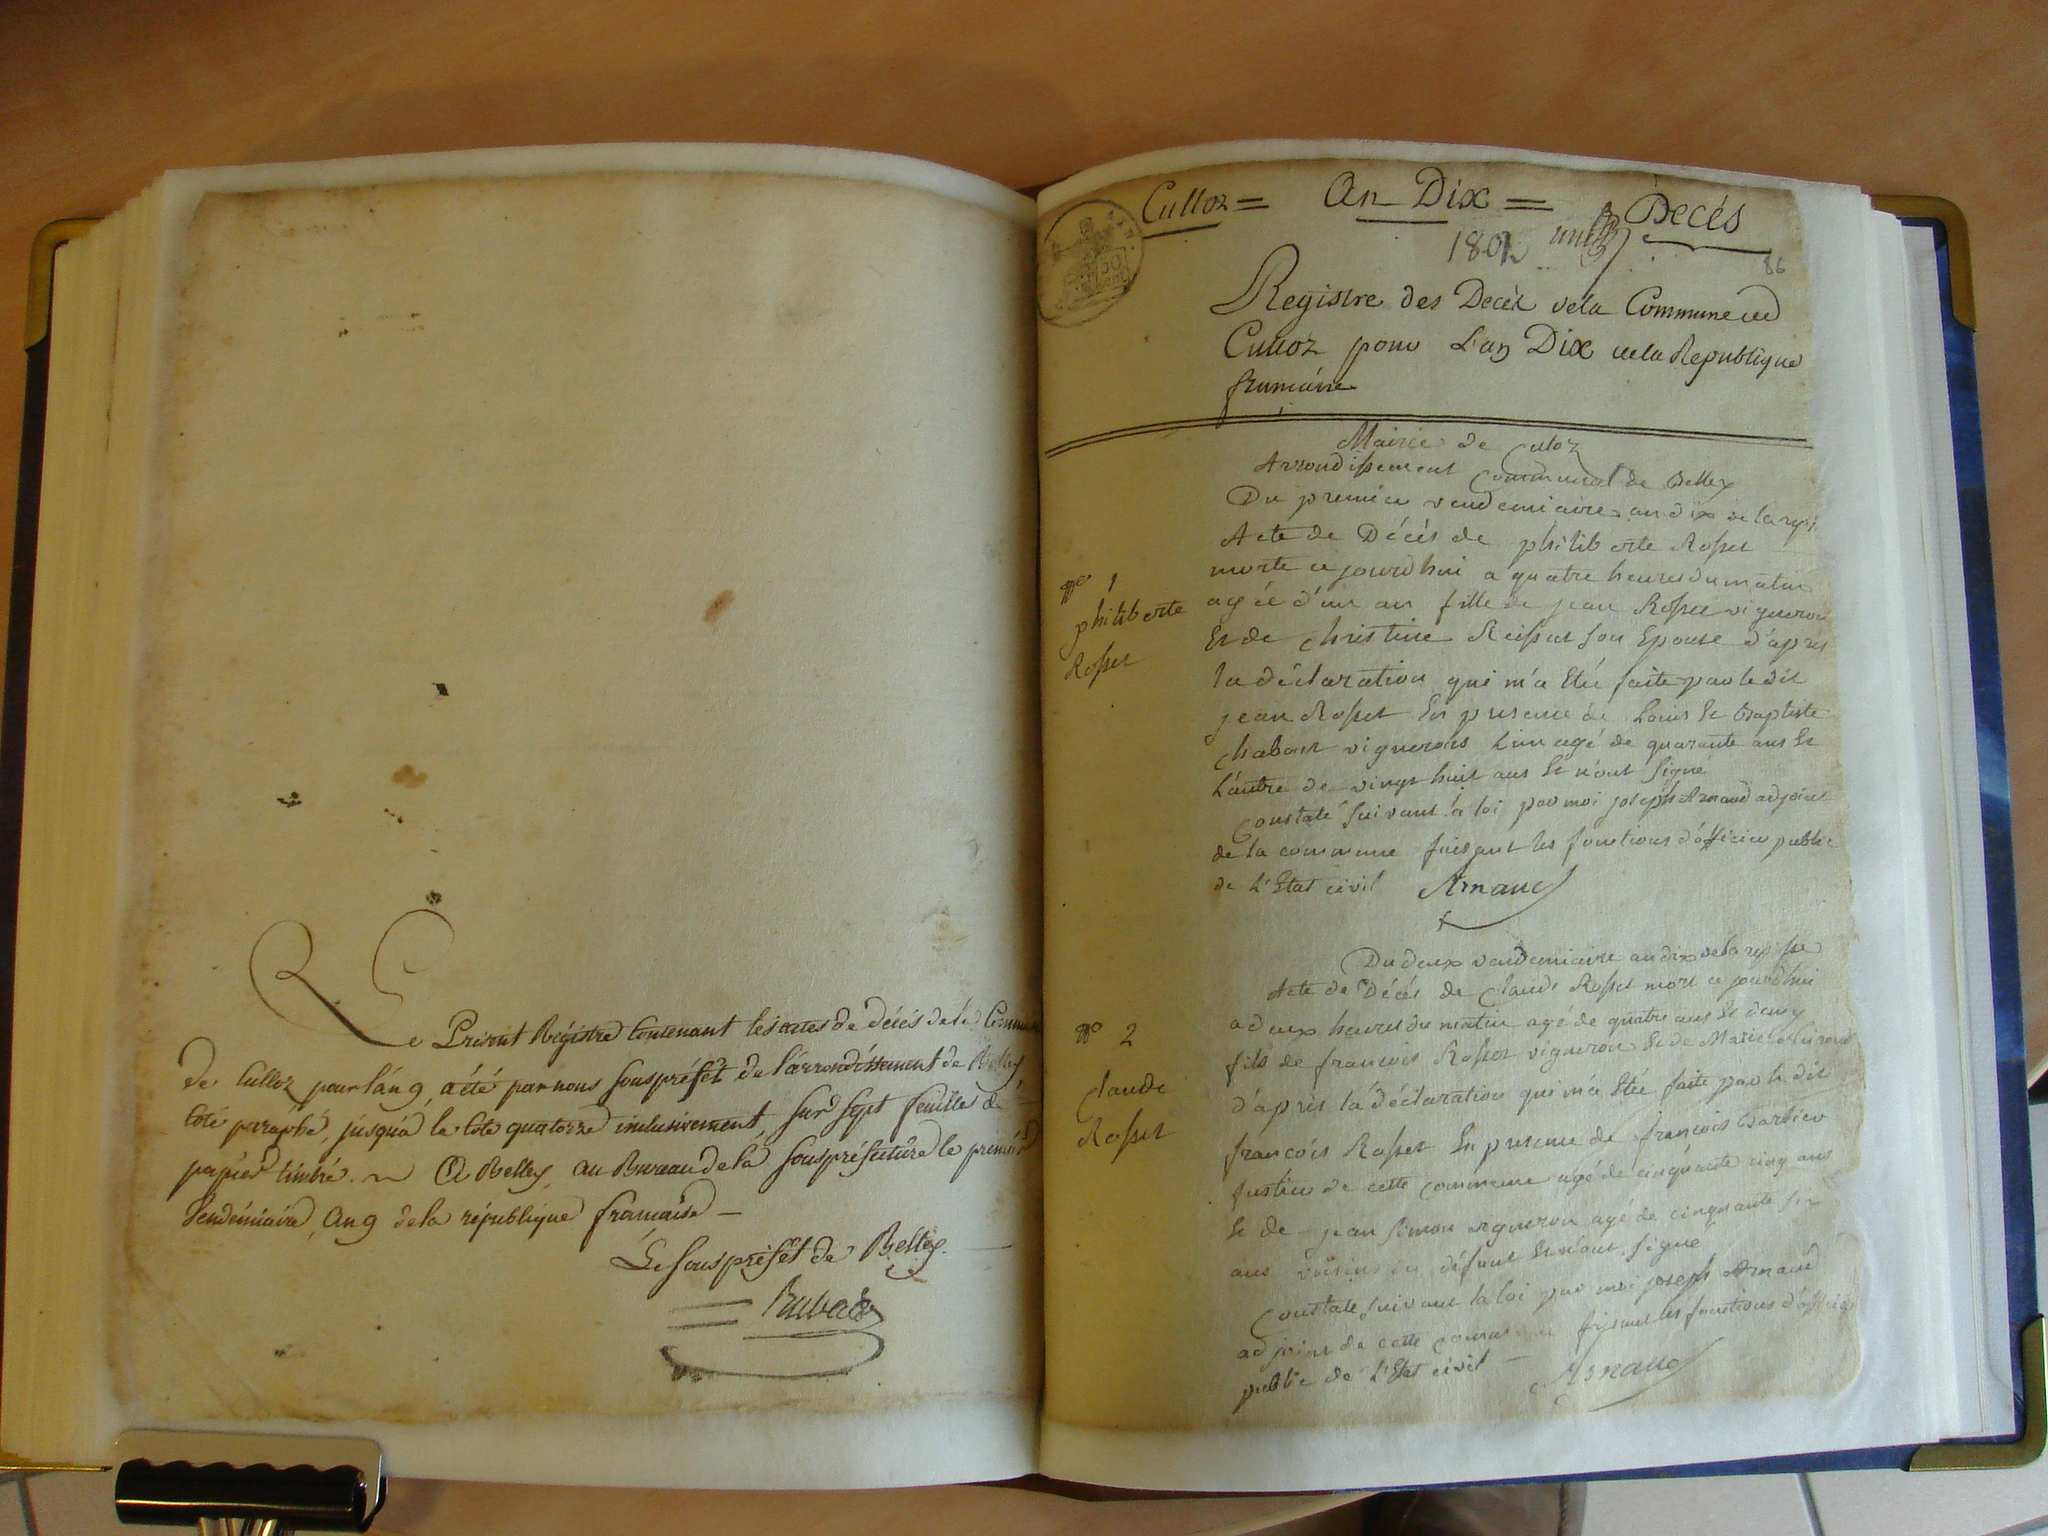 Le Présent Régistre Contenant les actes de décés de la Commune
de Culloz pour l'an 9, a été par nous souspréfét de l'arrondissement de Belley
côté paraphé, jusqu'a la côte quatorze inclusivement, sur sept feuilles de
papier timbré. A Belley, au Bureau de la souspréfecture le premier
Vendémiaire, an 9 de la république française —
Le souspréfét de Belley.
Culloz = An Dix = Décés
1802
86
Registre des Decès de la Commune de
Culloz pour L'an Dix de la Republique
francaise
Mairie de Culoz
Arrondissement Communal de Belley
Du premier vendemiaire an dix de la rep.
Acte de Décés de philiberte Rosset
morte ce jourd'hui a quatre heures du matin
agée d'un an fille de jean Rosset vigneron
Et de christine son Epouse d'apres
la déclaration qui m'a Eté faite par le dit
jean Rosset En presence de Louis Et Baptiste
chabout vignerons L'un agé de quarante ans Et
L'autre de vingt huit ans Et n'ont signé
Constaté suivant la loi par moi joseph Arnaud adjoint
de la commune faisant les fonctions d'officier public
de L'Etat civil Arnaud
N° 1
philiberte
Rosset
Du deux vendemiaire an dix de la rep. fse
Acte de Décés de Claude Rosset mort ce jourd'hui
a deux heures du matin agé de quatre ans Et demy
fils de francois Rosset vigneron Et de Marie
d'après la déclaration qui m'a Eté faite par le dit
francois Rosset En presence de francois barbier
de cette commune agé de cinquante cinq ans
Et de jean simon vigneron agé de cinquante six
ans voisins du défunt Et n'ont signé
Constaté suivant la loi par moi joseph Arnaud
adjoint de cette commune faisant les fonctions d'officier
public de L'Etat civil — Arnaud
N° 2
Claude
Rosset